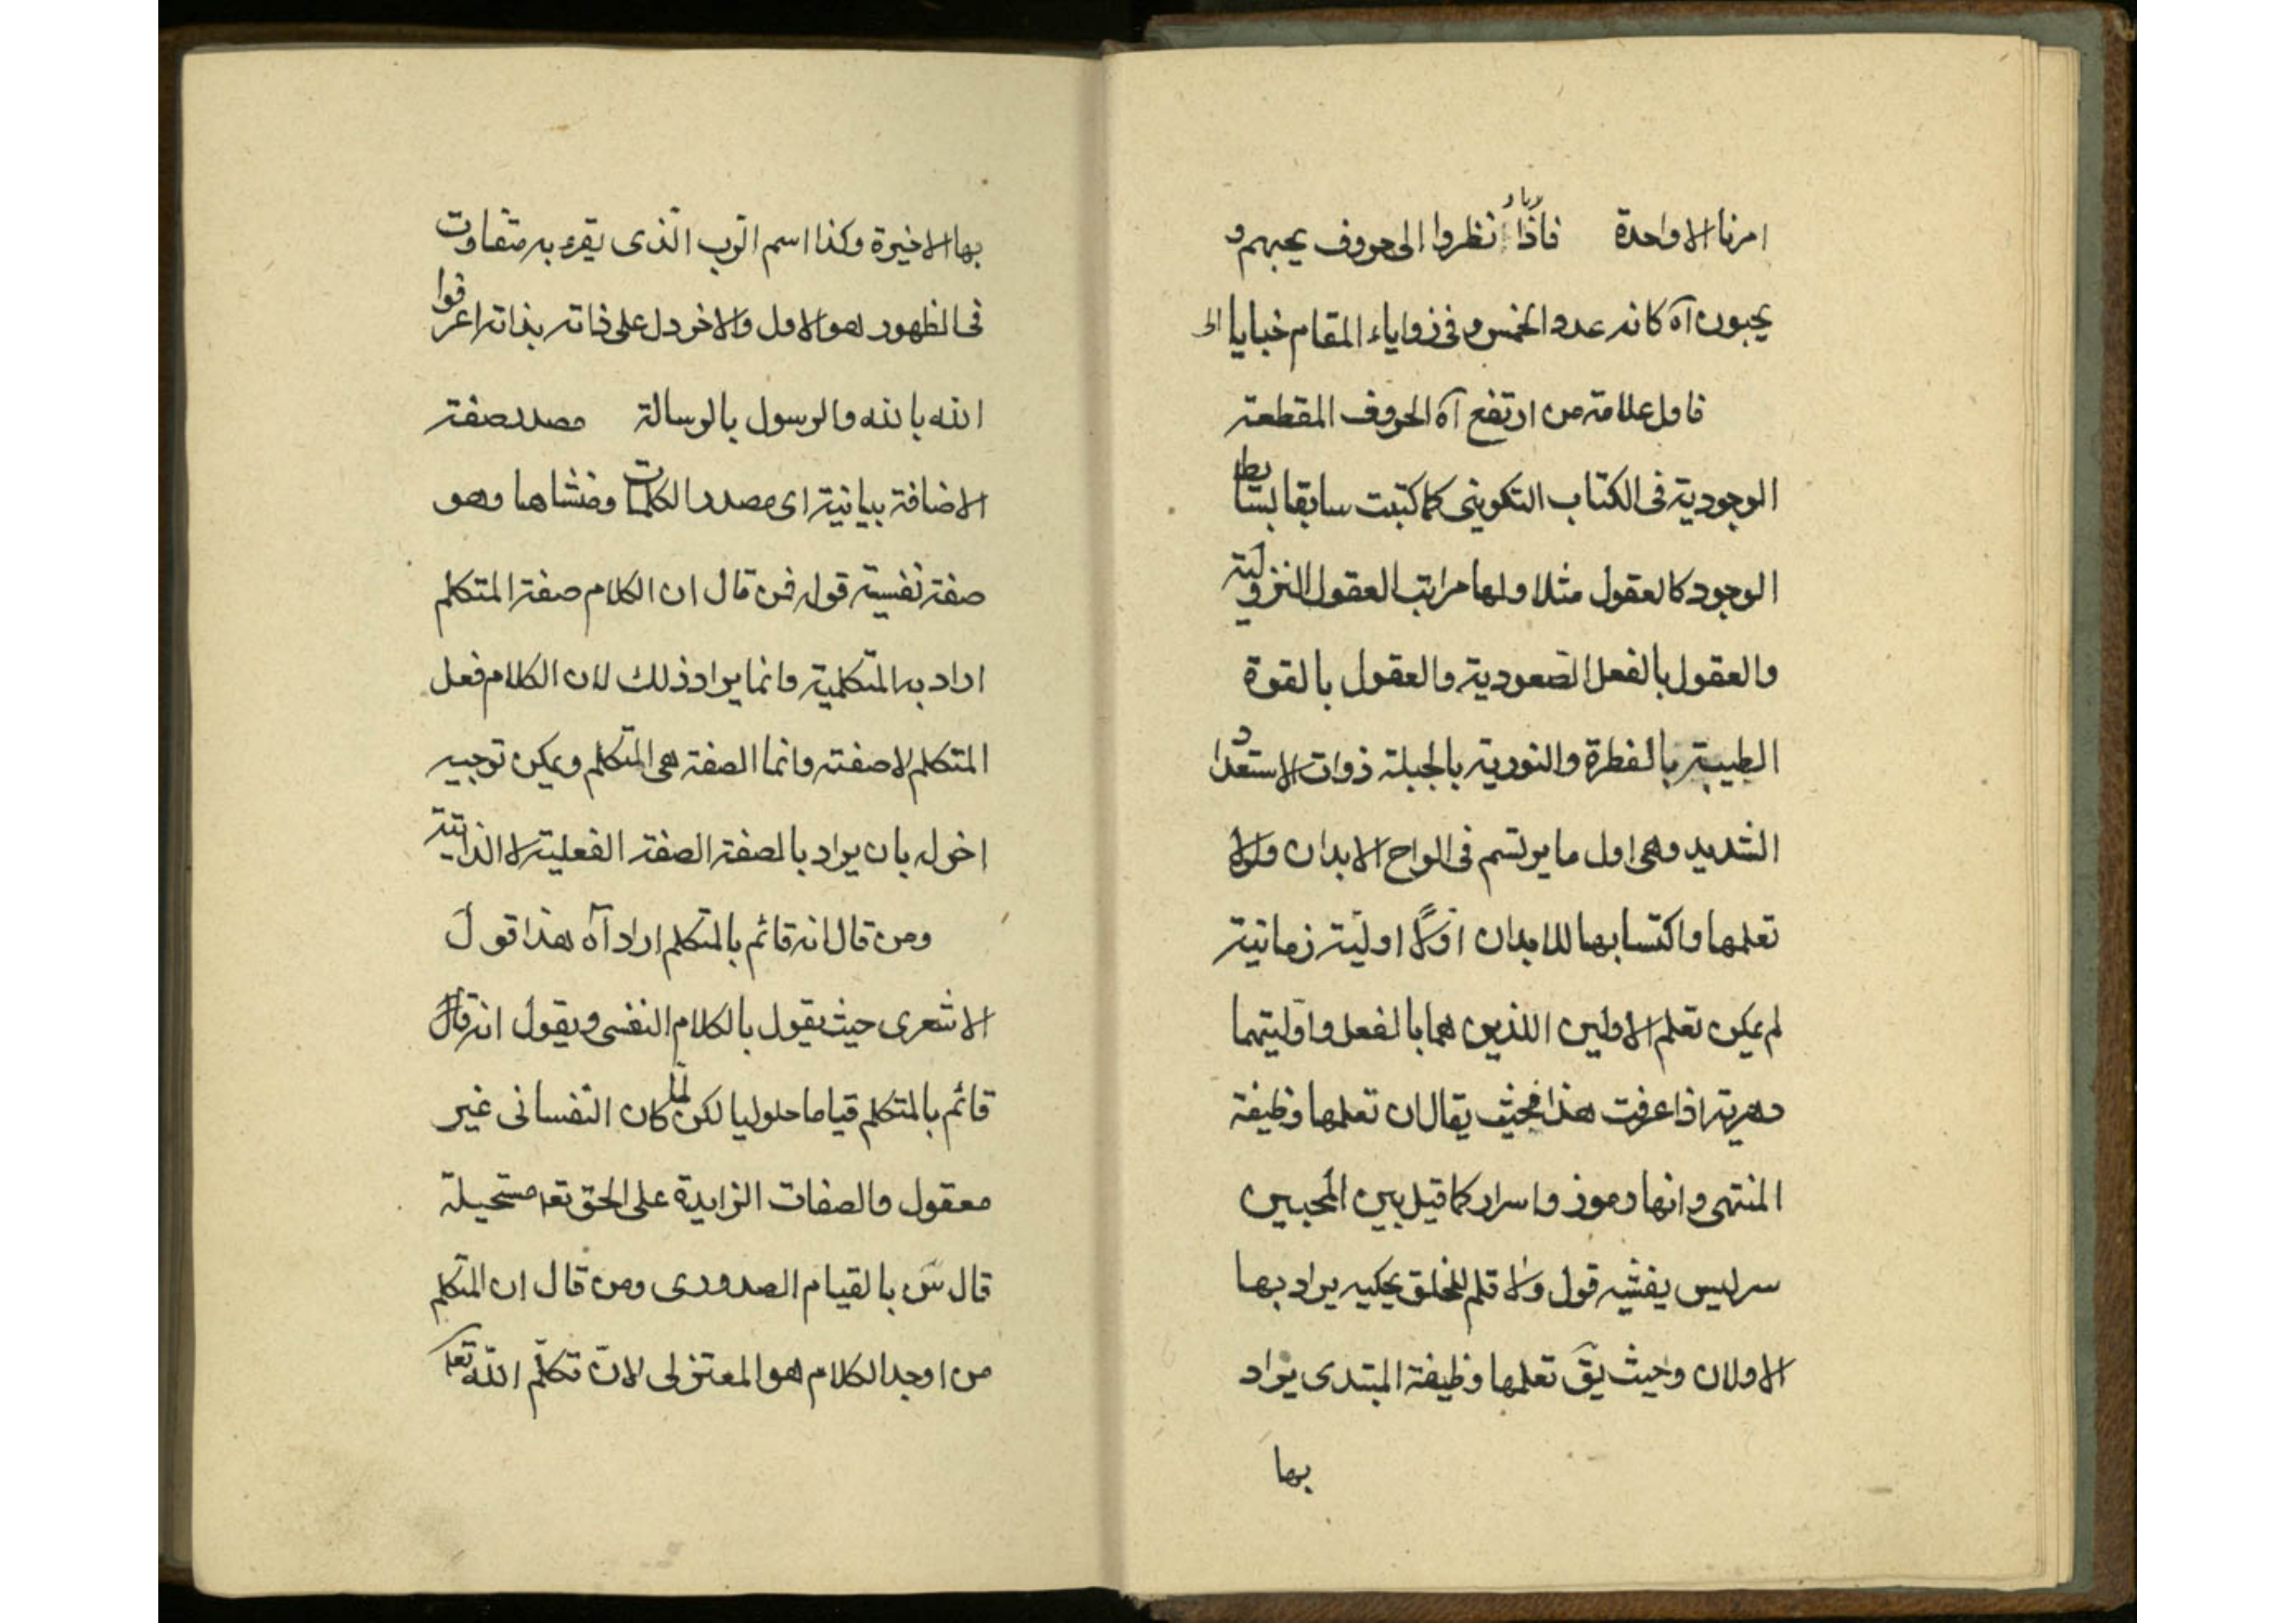 امرنا الا واحدة فاذا انظروا الى حروف يحبهم و
يحبون آه كانه عدد الخمس و فى زواياء المقام خبايا
فاول علامة من ارتفع آه الحروف المقطعة
الوجودية فى الكتاب التكوينى كما كتبت سابقا بسائط
الوجود كالعقول مثلا ولها مراتب العقول النزولية
والعقول بالفعل الصعودية والعقول بالقوة
الطيبة بالفطرة والنورية بالجبلة ذوات الاستعداد
الشديد وهى اول ما يرتسم فى الواح الابدان ولولا
تعلمها واكتسابها للابدان اوّلاً اوليّة زمانية
لم يمكن تعلم الاولين اللذين هما بالفعل واوّليتهما
دهرية اذا عرفت هذا فحيث يقال ان تعلمها وظيفة
المنتهى وانها رموز واسرار كما قيل بين المحبين
سر ليس يفشيه قول ولا قلم للخلق يحكيه يراد بها
الاولان وحيث يقّ تعلمها وظيفة المبتدى يراد
بها
بها الاخيرة وكذا اسم الرّب الّذى يقرء به متفاوت
فى الظهور هو الاول والاخر دل على ذاته بذاته اعرفوا
الله بالله والرسول بالرسالة مصدر صفة
الاضافة بيانية اى مصدر الكلمات ومنشاها وهو
صفة نفسية قوله فمن قال ان الكلام صفة المتكلم
اراد به المتكلمية وانما يراد ذلك لان الكلام فعل
المتكلم لا صفته وانما الصفة هى المتكلم ويمكن توجيه
اخر له بان يراد بالصفة الصفة الفعلية لا الذاتية
ومن قال انه قائم بالمتكلم اراد آه هذا قول
الاشعرى حيث يقول بالكلام النفسى ويقول انه قال
قائم بالمتكلم قياما حلوليا لكن لمّا كان النفسانى غير
معقول والصفات الزايدة على الحق تعا مستحيلة
قال سّ بالقيام الصدورى ومن قال ان المتكلم
من اوجد الكلام هو المعتزلى لانّ تكلّم اللّه تعا